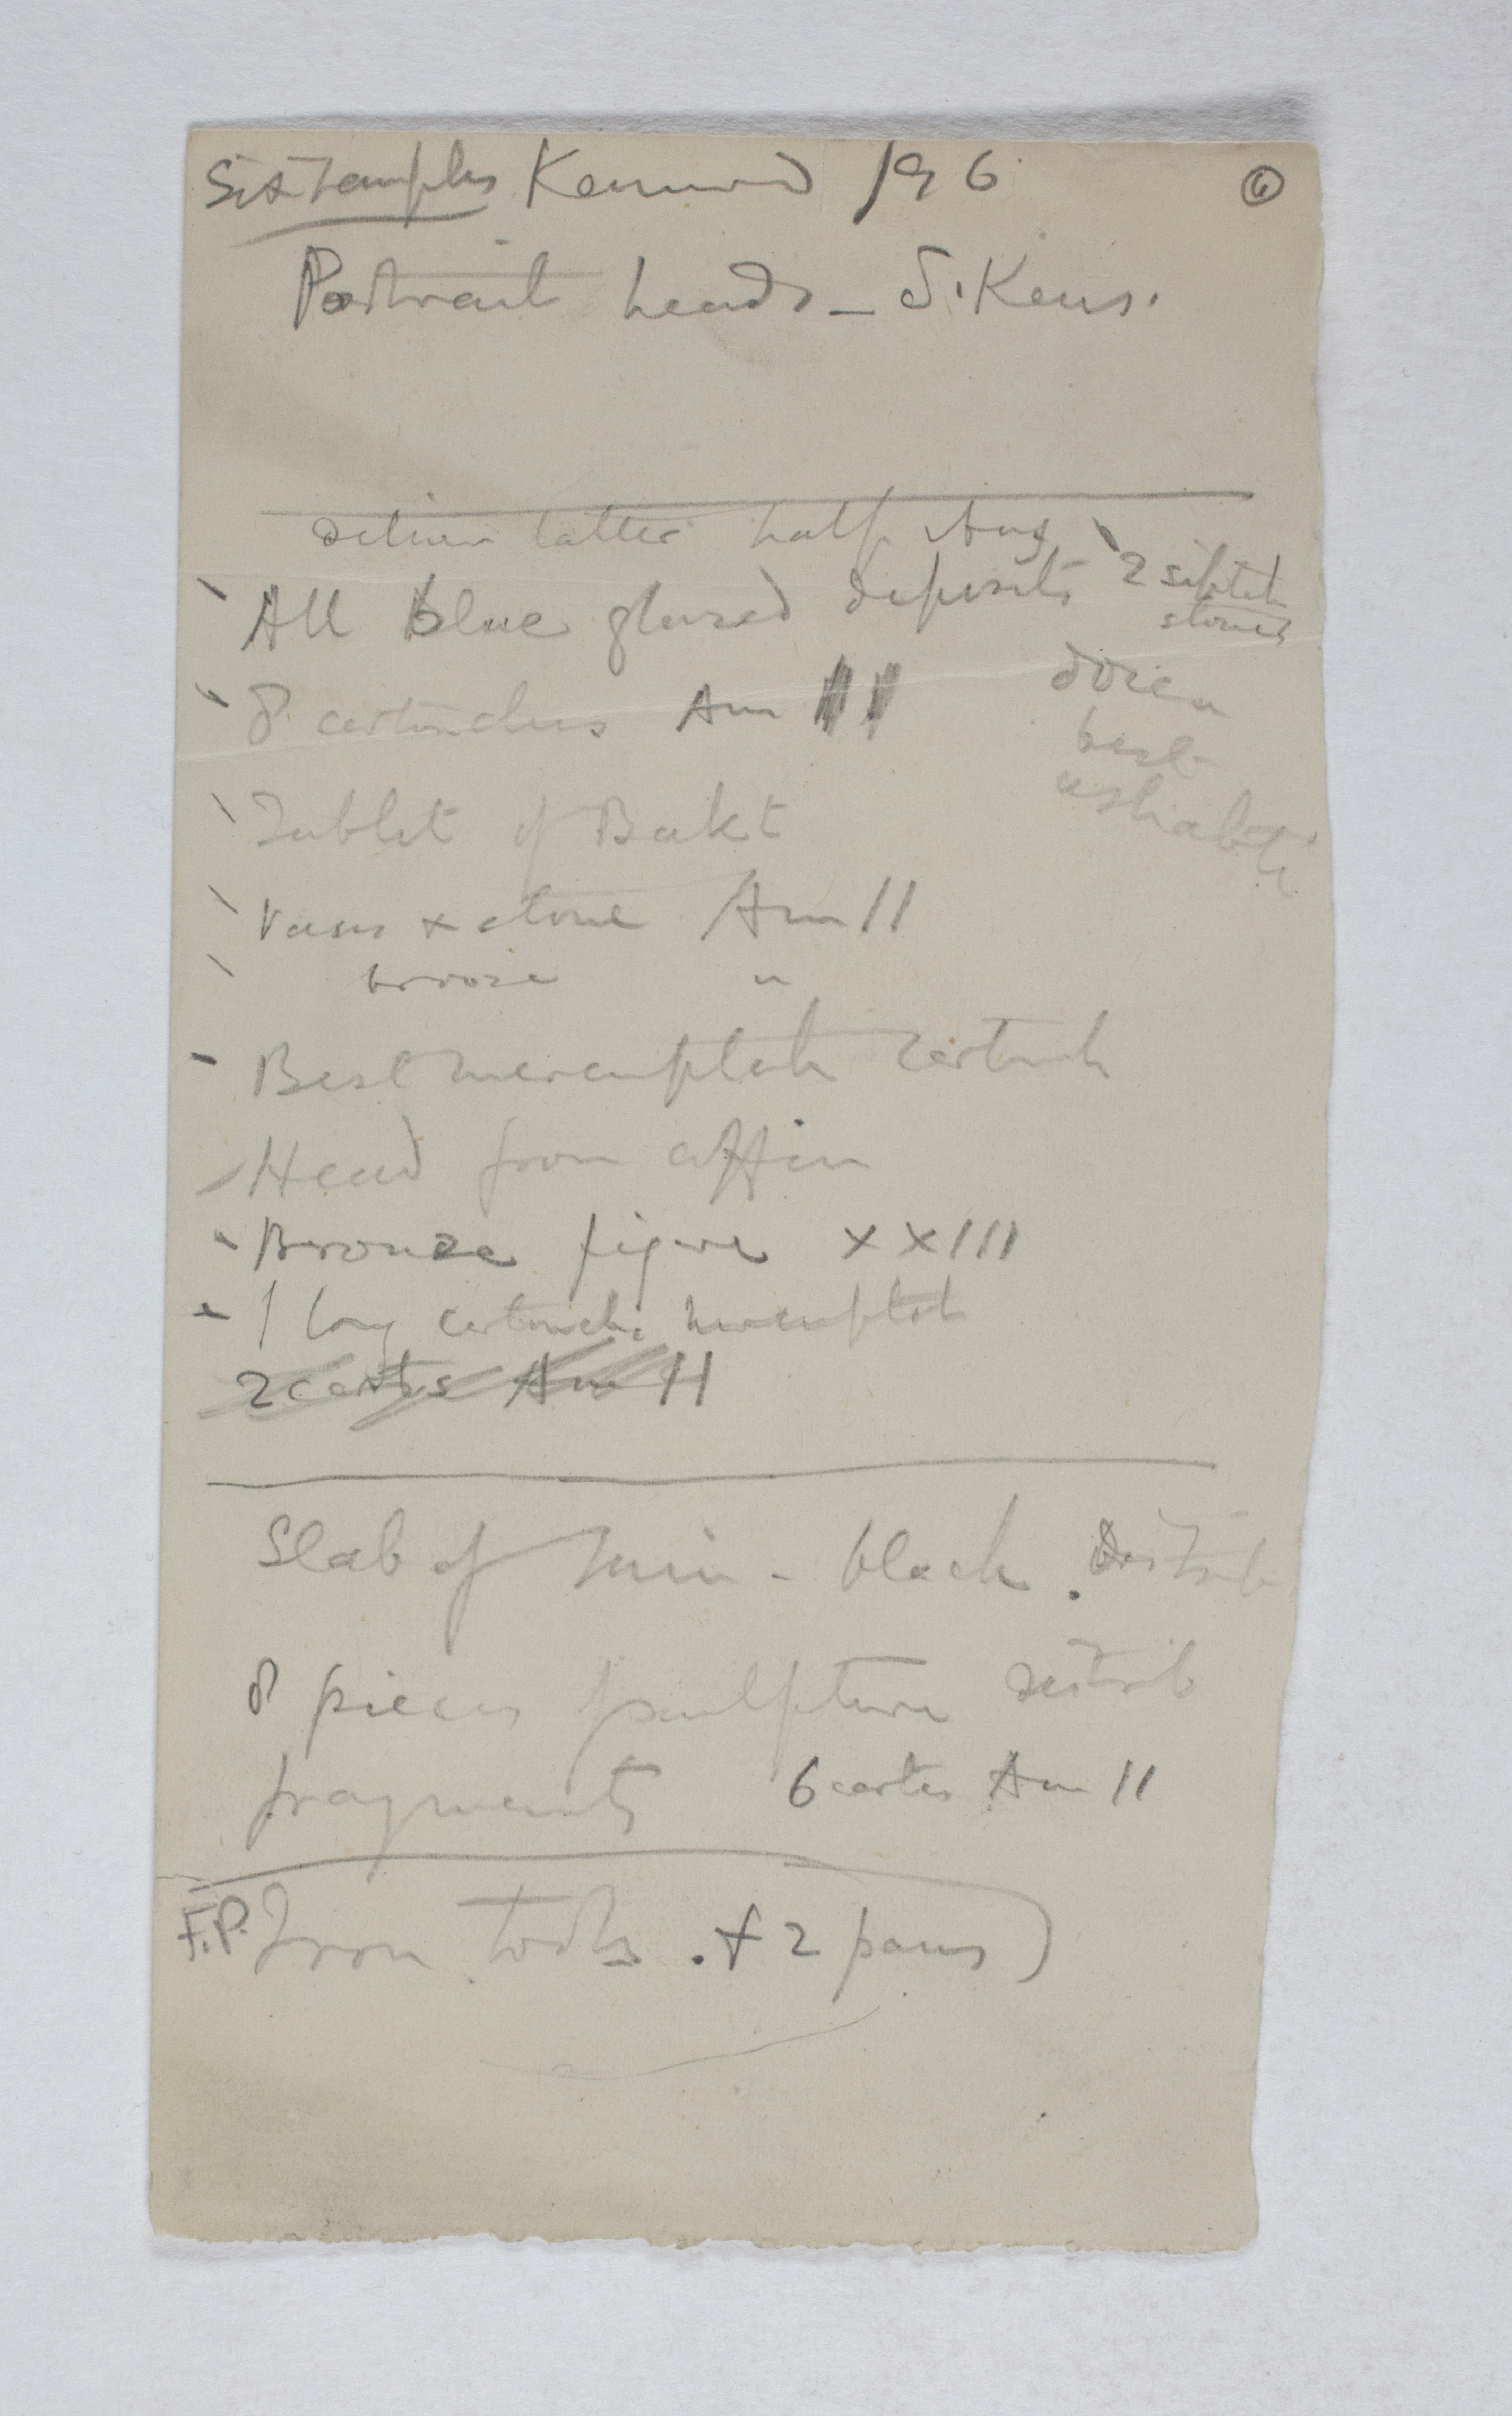 Six Temples Kennard 196 6
Portrait heads - S. Kens.
deliver latter half Aug
All blue glazed deposits
2 siptah
stones
8 cartouches Am II
dozen
best
ushabti
Tablet of Bakt
Vases & stone Am II
bronze "
Best merenptah cartouch
Head from coffin
Bronze figure XXIII
1 long cartouche merenptah
2 carts Am II
Slab of Min - black. distrib
8 pieces sculpture distrib
fragments 6 carts Am II
F.P. Iron tools. + 2 pans)